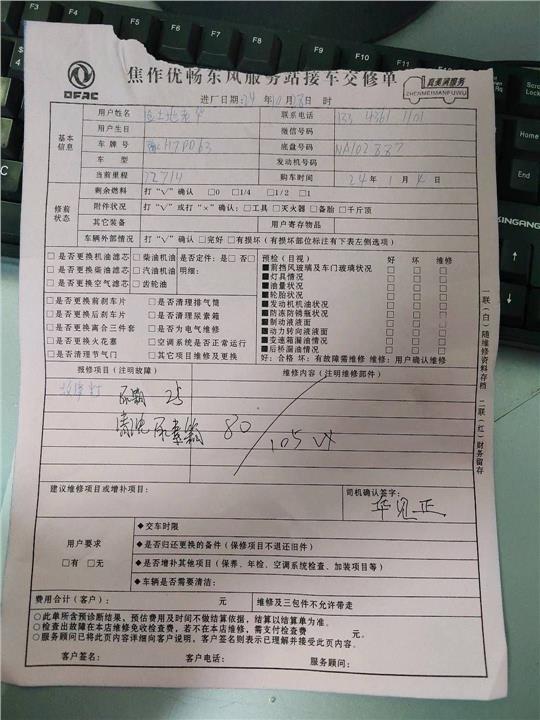 焦作优畅东风服务站接车交修单
DFAC
真美满服务
ZHENMEIMANFUWU
进厂日期:24 年10月28日 时
基本信息
用户姓名 联系电话 133 4361 1101
用户生日 微信号码
车牌号 H7PD63 底盘号码 NA102887
车 型 发动机号码
当前里程 72714 购车时间 24年 1月 日
修前状态
剩余燃料 打“√”确认 □0 □1/4 □1/2 □1
附件状况 打“√”或打“×”确认:□工具 □灭火器 □备胎 □千斤顶
其它装备 用户寄存物品
车辆外部情况 打“√”确认 □完好 □有损坏(有损坏部位标注有下表左侧选项)
□是否更换机油滤芯 □柴油机油 是否定件: 是□ 否□
□是否更换柴油滤芯 □汽油机油 明细:
□是否更换空气滤芯 □齿轮油
□是否更换前刹车片 □是否清理排气筒
□是否更换后刹车片 □是否清理尿素箱
□是否更换离合三件套 □是否为电气维修
□是否更换火花塞 □空调系统是否正常运行
□是否清理节气门 □其它项目维修及更换
预检(目视) 好 坏 维修
■前挡风玻璃及车门玻璃状况 □ □ □
■灯具情况 □ □ □
■油量状况 □ □ □
■轮胎状况 □ □ □
■发动机机油状况 □ □ □
■防冻防锈瓶状况 □ □ □
■制动液液面 □ □ □
■动力转向液液面 □ □ □
■变速箱漏油情况 □ □ □
■后桥漏油情况 □ □ □
好:合格 坏:有故障需维修 维修:用户确认维修
报修项目(注明故障) 维修内容(注明维修部件)
故障灯 25
清洗尿素箱 80
105
建议维修项目或增补项目: 司机确认签字:
用户要求
□有 □无
◆交车时限
◆是否归还更换的备件(保修项目不退还旧件)
◆是否增补其他项目(保养、年检、空调系统检查、加装项目等)
◆车辆是否需要清洁:
费用合计(客户): 元 维修及三包件不允许带走
○此单所含预诊断结果、预估费用及时间不做结算依据,结算以结算单为准。
○检查出故障在本店维修免收检查费,若不在本店维修,需支付检查费 元。
○服务顾问已将此页内容详细向客户说明,客户签名则表示已理解并接受此页内容。
客户签名: 客户电话: 服务顾问:
一联(白)随维修资料存档 二联(红)财务留存
F3
F4
F5
F6
F7
F8
F9
F10
F11
F12
Enter
Ctrl